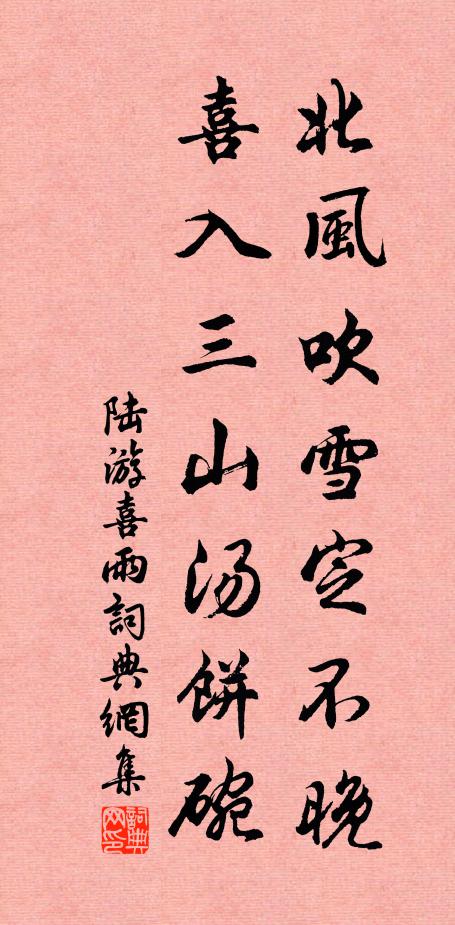 北風吹雪定不晚
喜入三山汤餅碗
陆游喜雨詞典網集
詞典网印